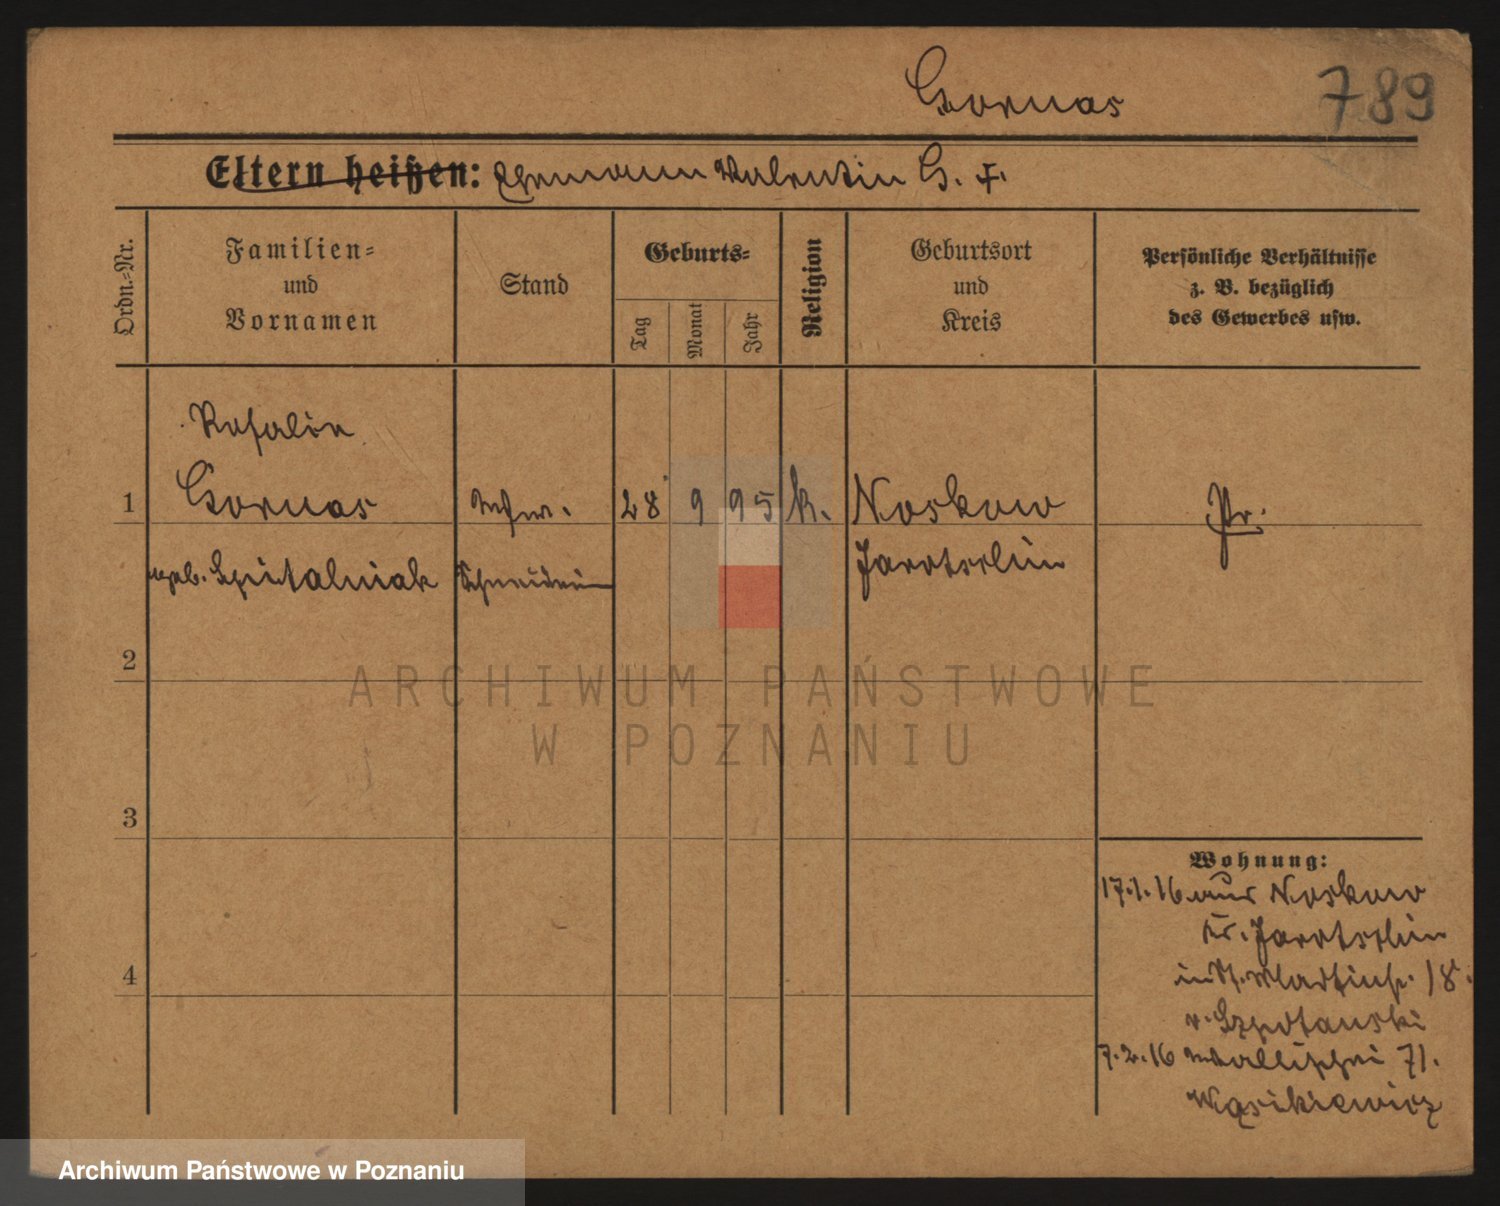 Gornas
789
Eltern heißen: Ehemann Valentin G. †.
Ordn.-Nr.
Familien-
und
Vornamen
Stand
Geburts-
Tag
Monat
Jahr
Religion
Geburtsort
und
Kreis
Persönliche Verhältnisse
z. B. bezüglich
des Gewerbes usw.
Rosalie
1 Gornas Wwe. 28 9 95 k. Noskow Pr.
geb. Szpitalniak Schneiderin Jarotschin
2
3
4
Wohnung:
17.1.16 aus Noskow
Kr. Jarotschin
in St. Martinstr. 18.
v. Szpotanski
7.2.16 Wallischei 71.
Wąsikiewicz
ARCHIWUM PAŃSTWOWE
W POZNANIU
Archiwum Państwowe w Poznaniu